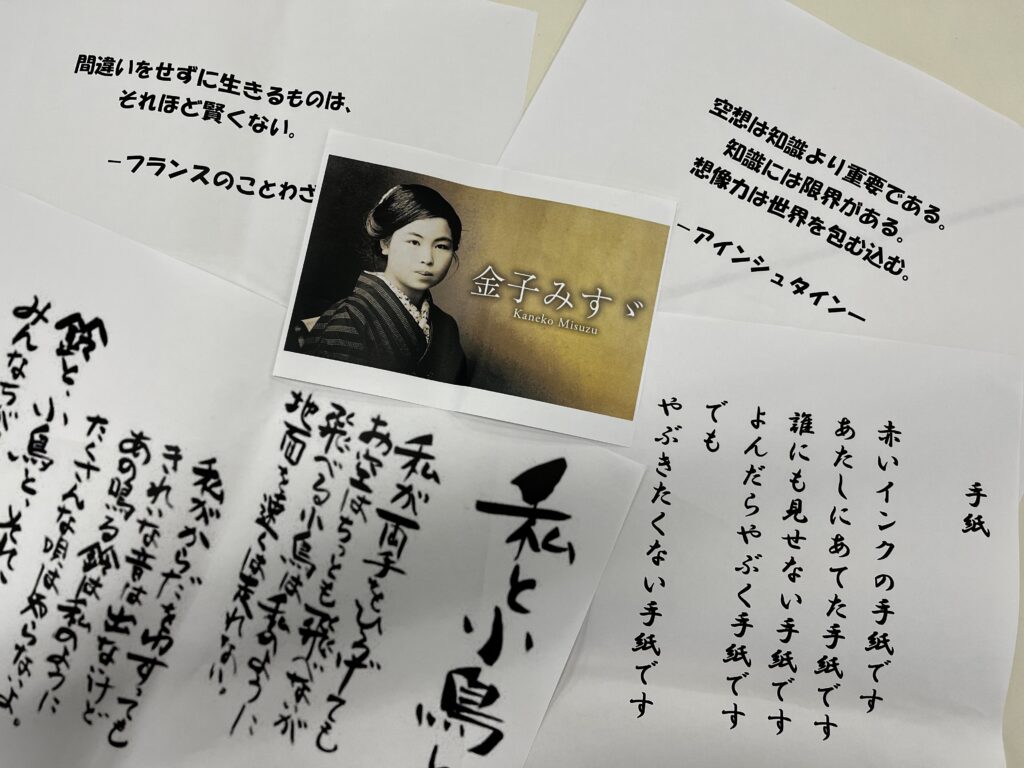 間違いをせずに生きるものは、
それほど賢くない。
−フランスのことわざ
空想は知識より重要である。
知識には限界がある。
想像力は世界を包む込む。
−アインシュタイン−
金子みすゞ
Kaneko Misuzu
手紙
赤いインクの手紙です
あたしにあてた手紙です
誰にも見せない手紙です
よんだらやぶく手紙です
でも
やぶきたくない手紙です
私と小鳥
私が両手をひろげても
お空はちっとも飛べないが
飛べる小鳥は私のように
地面を速くは走れない。
私がからだをゆすっても
きれいな音は出ないけど
あの鳴る鈴は私のように
たくさんな唄は知らないよ。
鈴と、小鳥と、それ
みんなちがい